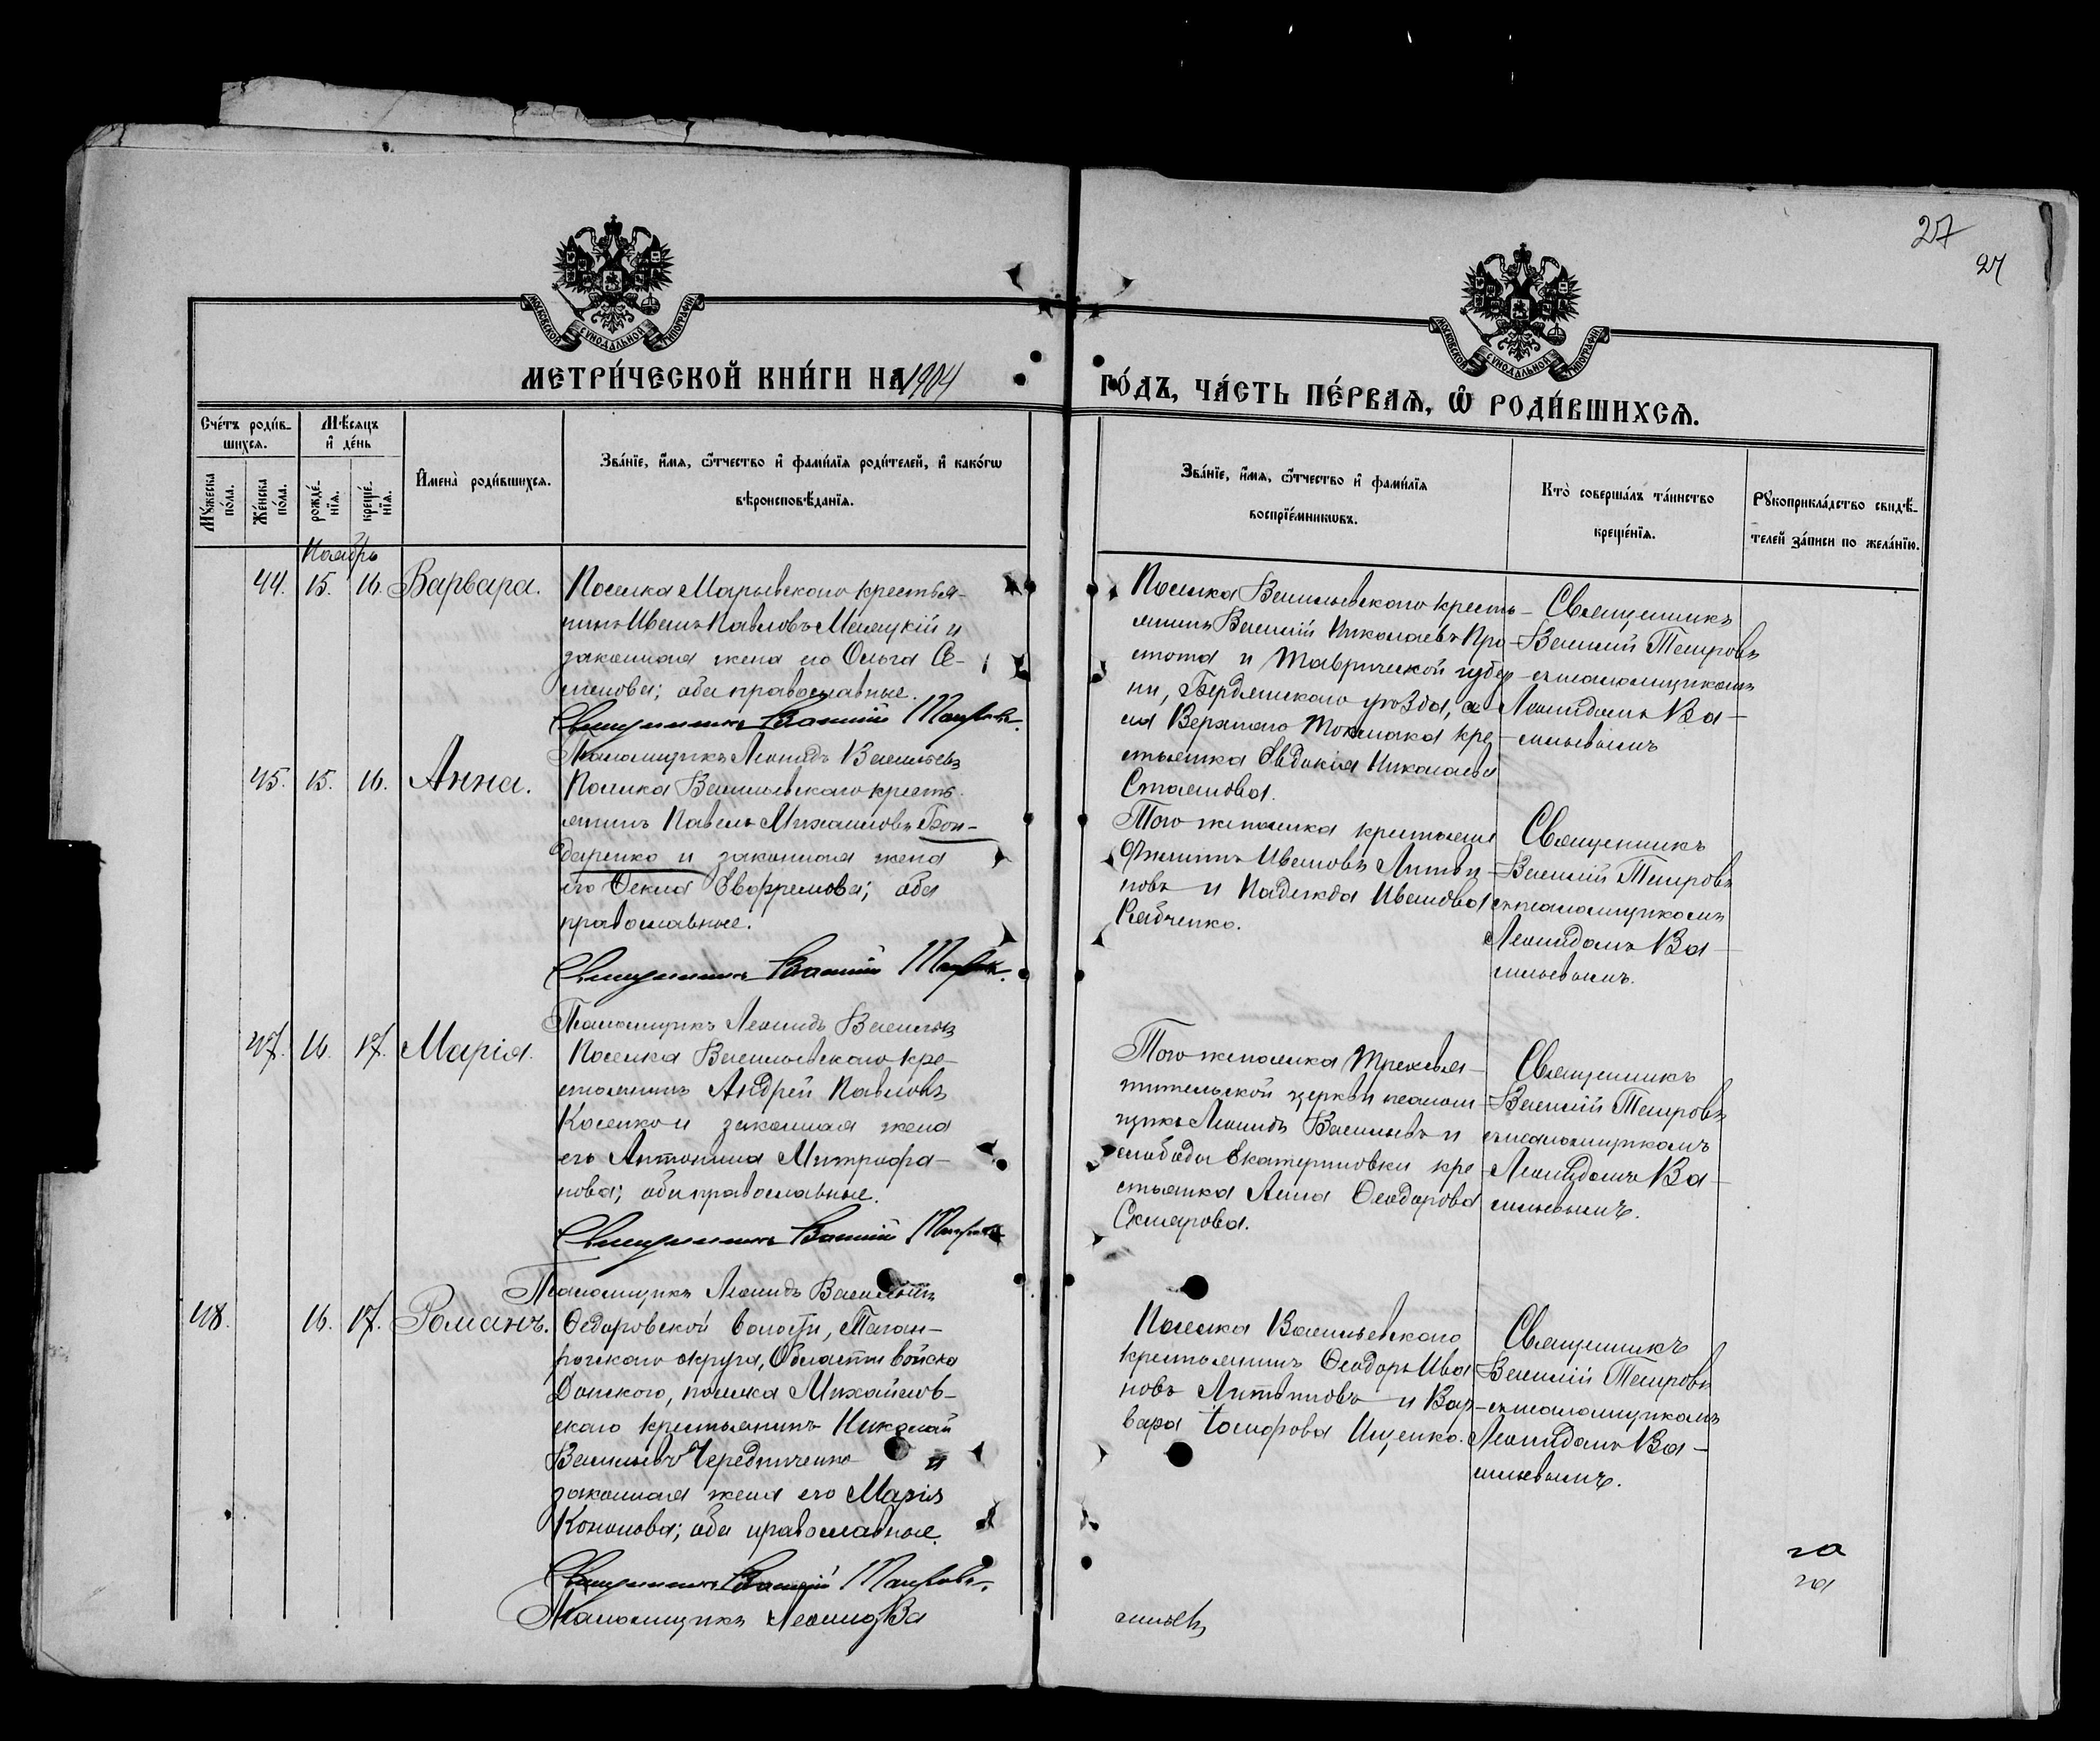 27
27
МОСКОВСКОЙ СУНОДАЛЬНОЙ ТИПОГРАФІИ
МОСКОВСКОЙ СУНОДАЛЬНОЙ ТИПОГРАФІИ
МЕТРИ́ЧЕСКОЙ КНИ́ГИ НА 1904
ГО́ДЪ, ЧА́СТЬ ПЕ́РВАѦ, Ѡ҆ РОДИ́ВШИХСѦ.
Сче́тъ роди́в-
шихсѧ.
Мѣ́сѧцъ
и҆ де́нь
Мꙋ́жеска по́ла.
Же́нска по́ла.
рожде́-
нїѧ.
креще́-
нїѧ.
И҆мена̀ роди́вшихсѧ.
Зва́нїе, и҆́мѧ, ѻ҆́тчество и҆ фами́лїѧ роди́телей, и҆ како́гѡ
вѣроисповѣ́данїѧ.
Зва́нїе, и҆́мѧ, ѻ҆́тчество и҆ фами́лїѧ
воспрїе́мникѡвъ.
Кто̀ соверша́лъ та́инство
креще́нїѧ.
Рꙋкоприкла́дство свидѣ́-
телей за́писи по жела́нїю.
Ноябрь
44. 15. 16. Варвара.
Поселка Марьевскаго крестья-
нинъ Иванъ Павловъ и
законная жена его Ольга Се-
менова; оба православные.
Священникъ Василій Темировъ.
Псаломщикъ Леонидъ Васильевъ
Поселка Васильевскаго кресть-
янинъ Василій Николаевъ Про-
стота и Таврической губер-
ніи, Бердянскаго уѣзда, се-
ла Верхняго Токмака кре-
стьянка Евдокія Николаева
Стоянова.
Священникъ
Василій Темировъ
съ псаломщикомъ
Леонидомъ Ва-
сильевымъ
45. 15. 16. Анна.
Поселка Васильевскаго кресть-
янинъ Павелъ Михаиловъ Бон-
даренко и законная жена
его Ѳекла Евфремова; оба
православные.
Священникъ Василій Темировъ.
Псаломщикъ Леонидъ Васильевъ
Того же поселка крестьяне
Филиппъ Ивановъ Антип-
повъ и Надежда Иванова
Рябченко.
Священникъ
Василій Темировъ
съ псаломщикомъ
Леонидомъ Ва-
сильевымъ.
47. 16. 17. Марія.
Поселка Васильевскаго кре-
стьянинъ Андрей Павловъ
Косенко и законная жена
его Антонина Митрофа-
нова; оба православные.
Священникъ Василій Темировъ
Псаломщикъ Леонидъ Васильевъ
Того же поселка Трехсвя-
тительской церкви псалом-
щикъ Леонидъ Васильевъ и
слободы Екатериновки кре-
стьянка Анна Ѳеодорова
Склярова.
Священникъ
Василій Темировъ
съ псаломщикомъ
Леонидомъ Ва-
сильевымъ.
48. 16. 17. Романъ.
Ѳедоровской волости, Таган-
рогскаго округа, Области войска
Донского, поселка Михайлов-
скаго крестьянинъ Николай
Васильевъ Чередниченко и
законная жена его Марія
Кононова; оба православные.
Священникъ Василій Темировъ.
Псаломщикъ Леонидъ Ва
сильевъ
Поселка Васильевскаго
крестьянинъ Ѳеодоръ Ива
новъ Антипповъ и Вар-
вара Іосифова Ищенко.
Священникъ
Василій Темировъ
съ псаломщикомъ
Леонидомъ Ва-
сильевымъ.